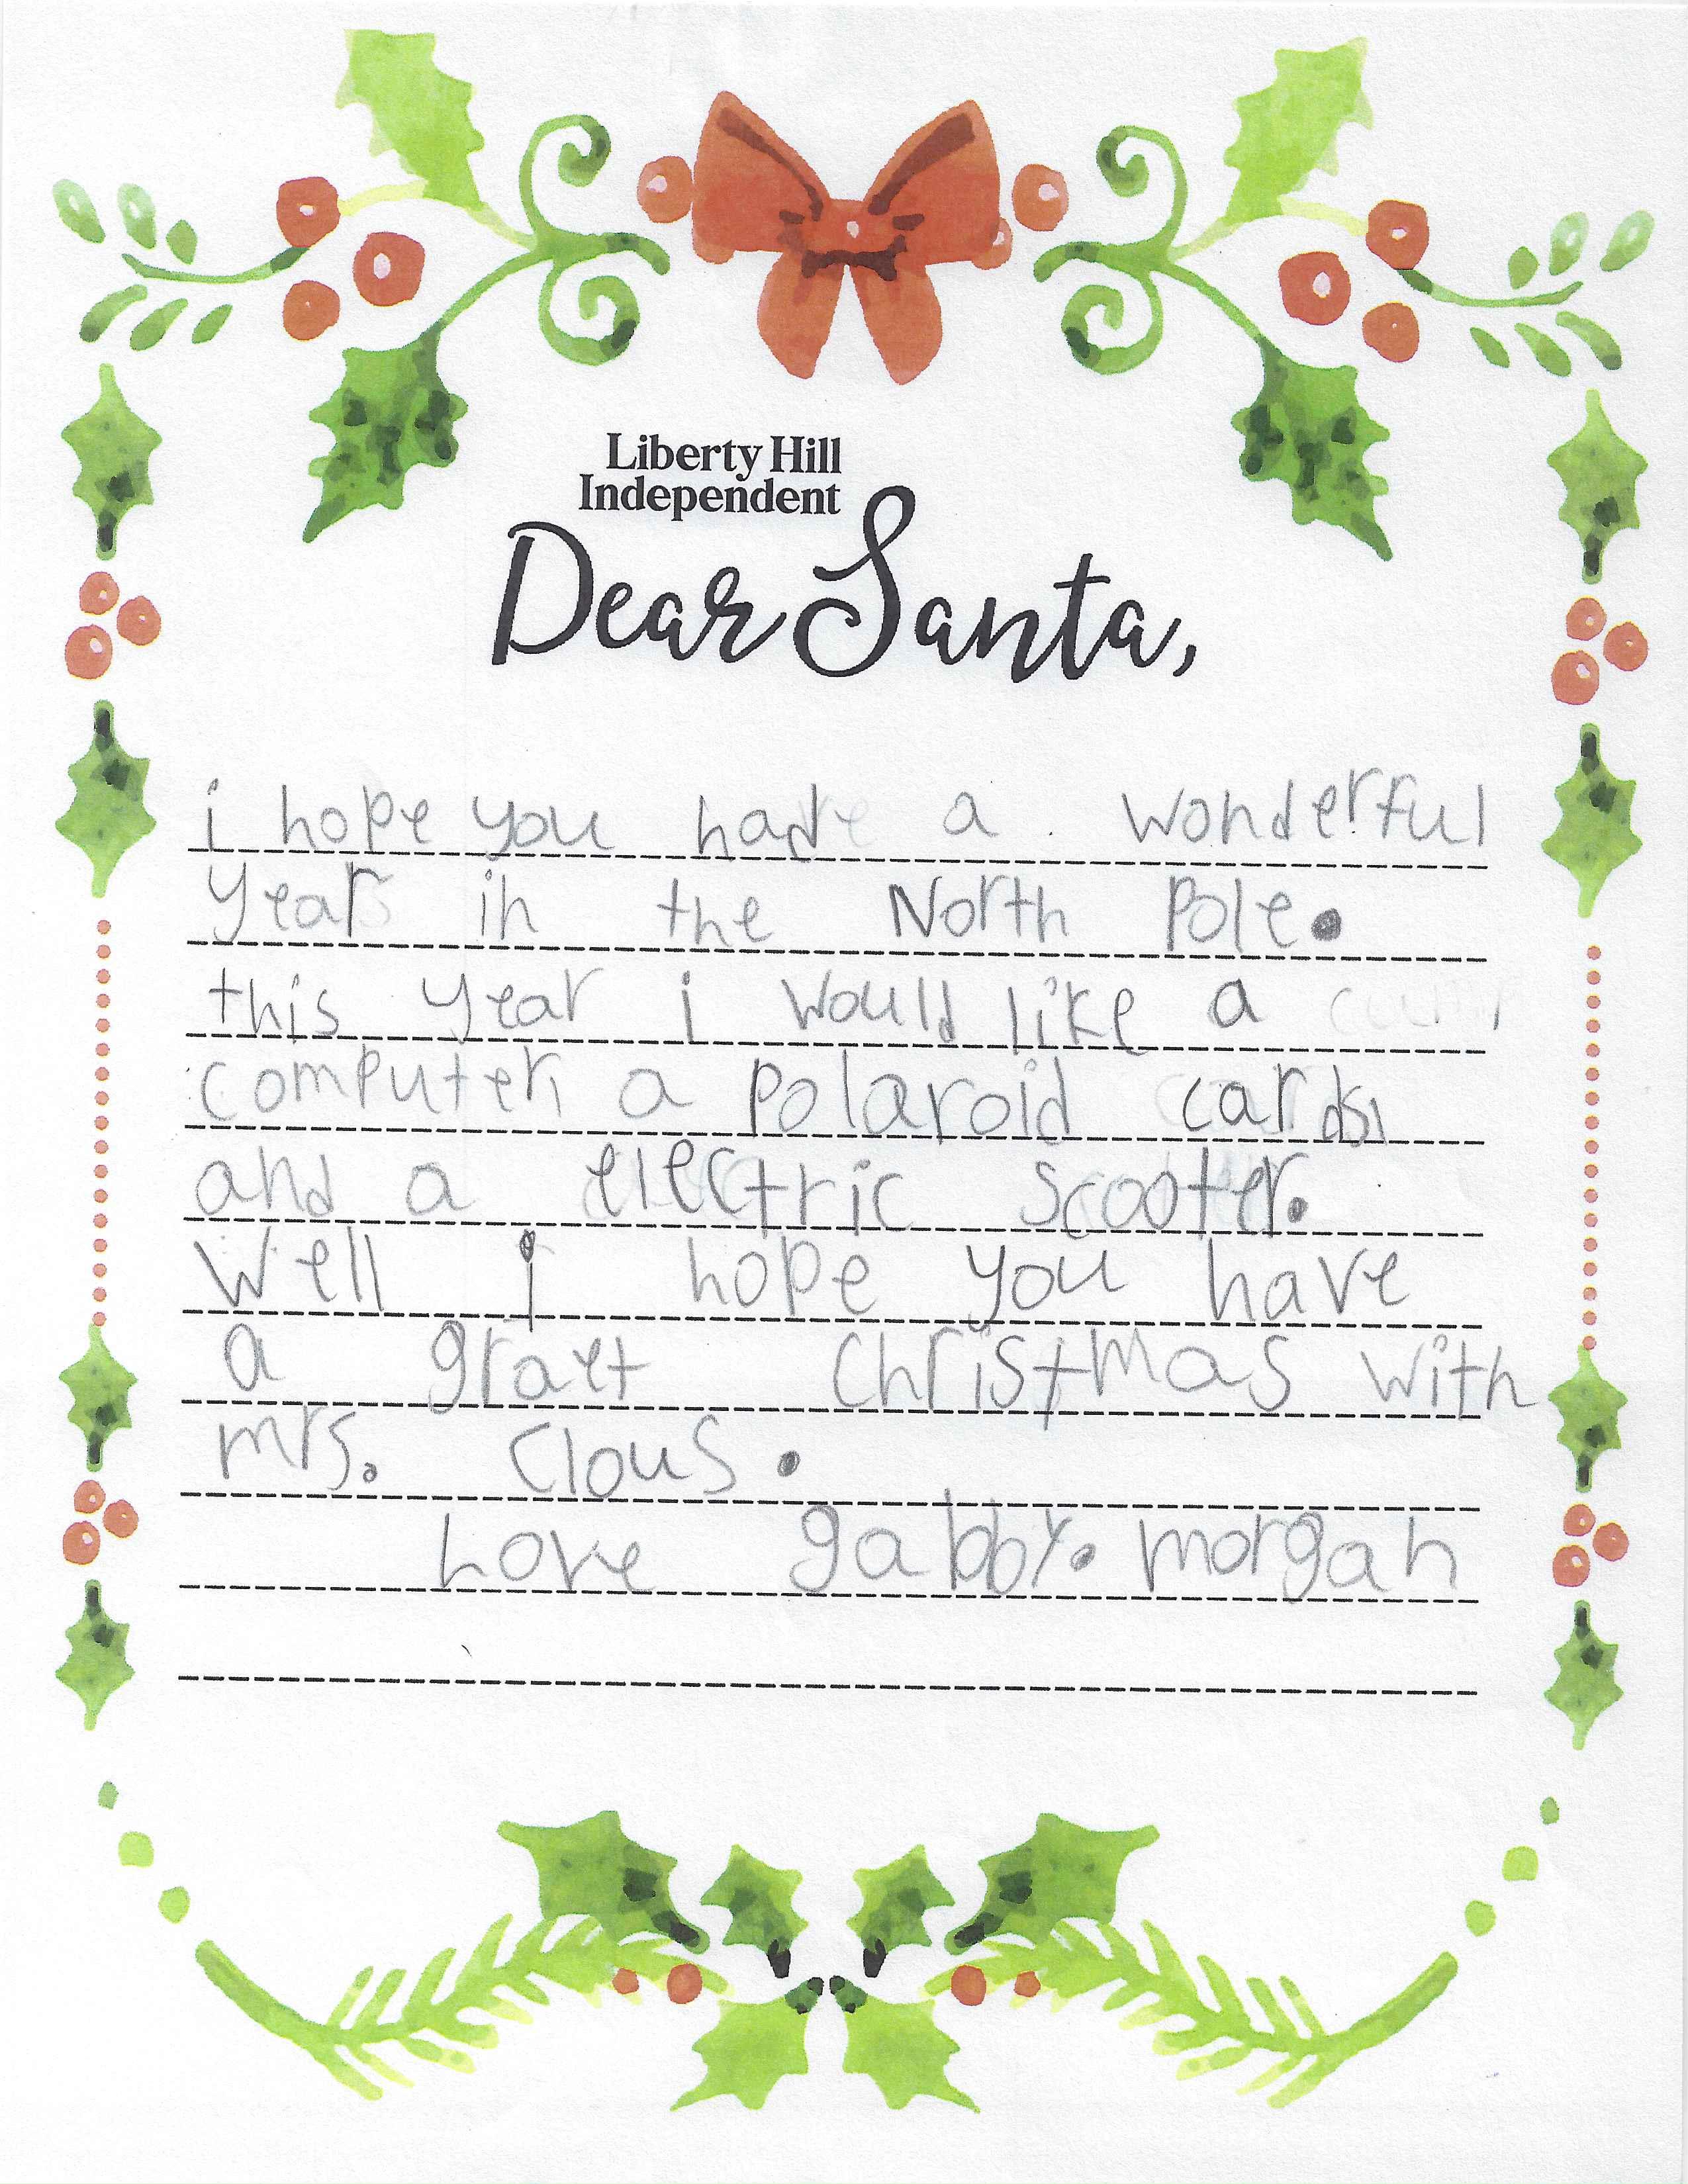 Liberty Hill
Independent
Dear Santa,
i hope you had a wonderful
year in the North Pole.
this year i would like a
computer, a Polaroid cards,
and a electric scooter.
Well i hope you have
a graet Christmas with
mrs. Clous.
Love gabby. morgan